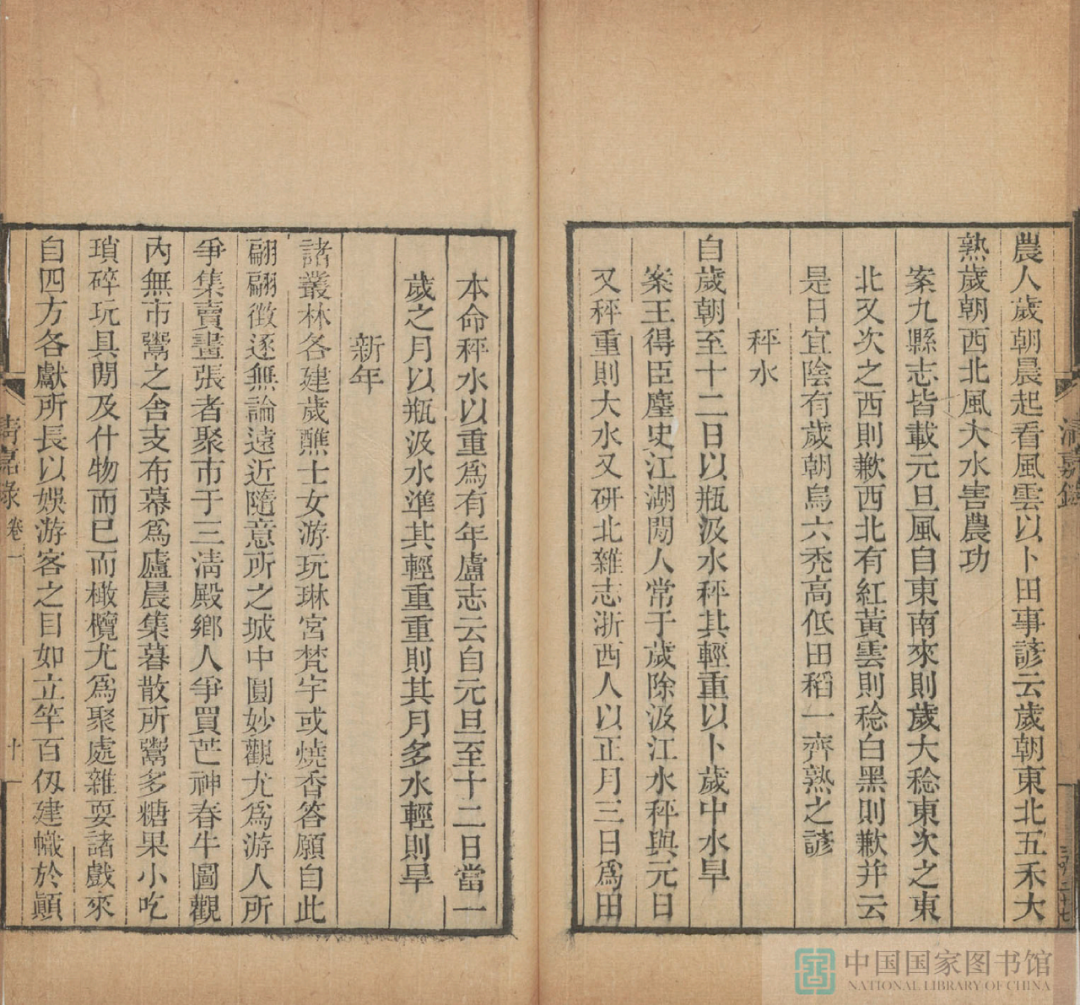 農人歲朝晨起看風雲以卜田事諺云歲朝東北五禾大
熟歲朝西北風大水害農功
案九縣志皆載元旦風自東南來則歲大稔東次之東
北又次之西則歉西北有紅黃雲則稔白黑則歉并云
是日宜陰有歲朝烏六禿高低田稻一齊熟之諺
秤水
自歲朝至十二日以瓶汲水秤其輕重以卜歲中水旱
案王得臣麈史江湖閒人常于歲除汲江水秤與元日
又秤重則大水又研北雜志浙西人以正月三日爲田
本命秤水以重爲有年盧志云自元旦至十二日當一
歲之月以瓶汲水準其輕重重則其月多水輕則旱
新年
諸叢林各建歲醮士女游玩琳宮梵宇或燒香答願自此
翩翩徵逐無論遠近隨意所之城中圓妙觀尤爲游人所
爭集賣畫張者聚市于三清殿鄉人爭買芒神春牛圖觀
內無市鬻之舍支布幕爲廬晨集暮散所鬻多糖果小吃
瑣碎玩具閒及什物而已而橄欖尤爲聚處雜耍諸戲來
自四方各獻所長以娛游客之目如立竿百仭建幟於顚
清嘉錄 卷一
十一
清嘉錄
中国国家图书馆
NATIONAL LIBRARY OF CHINA